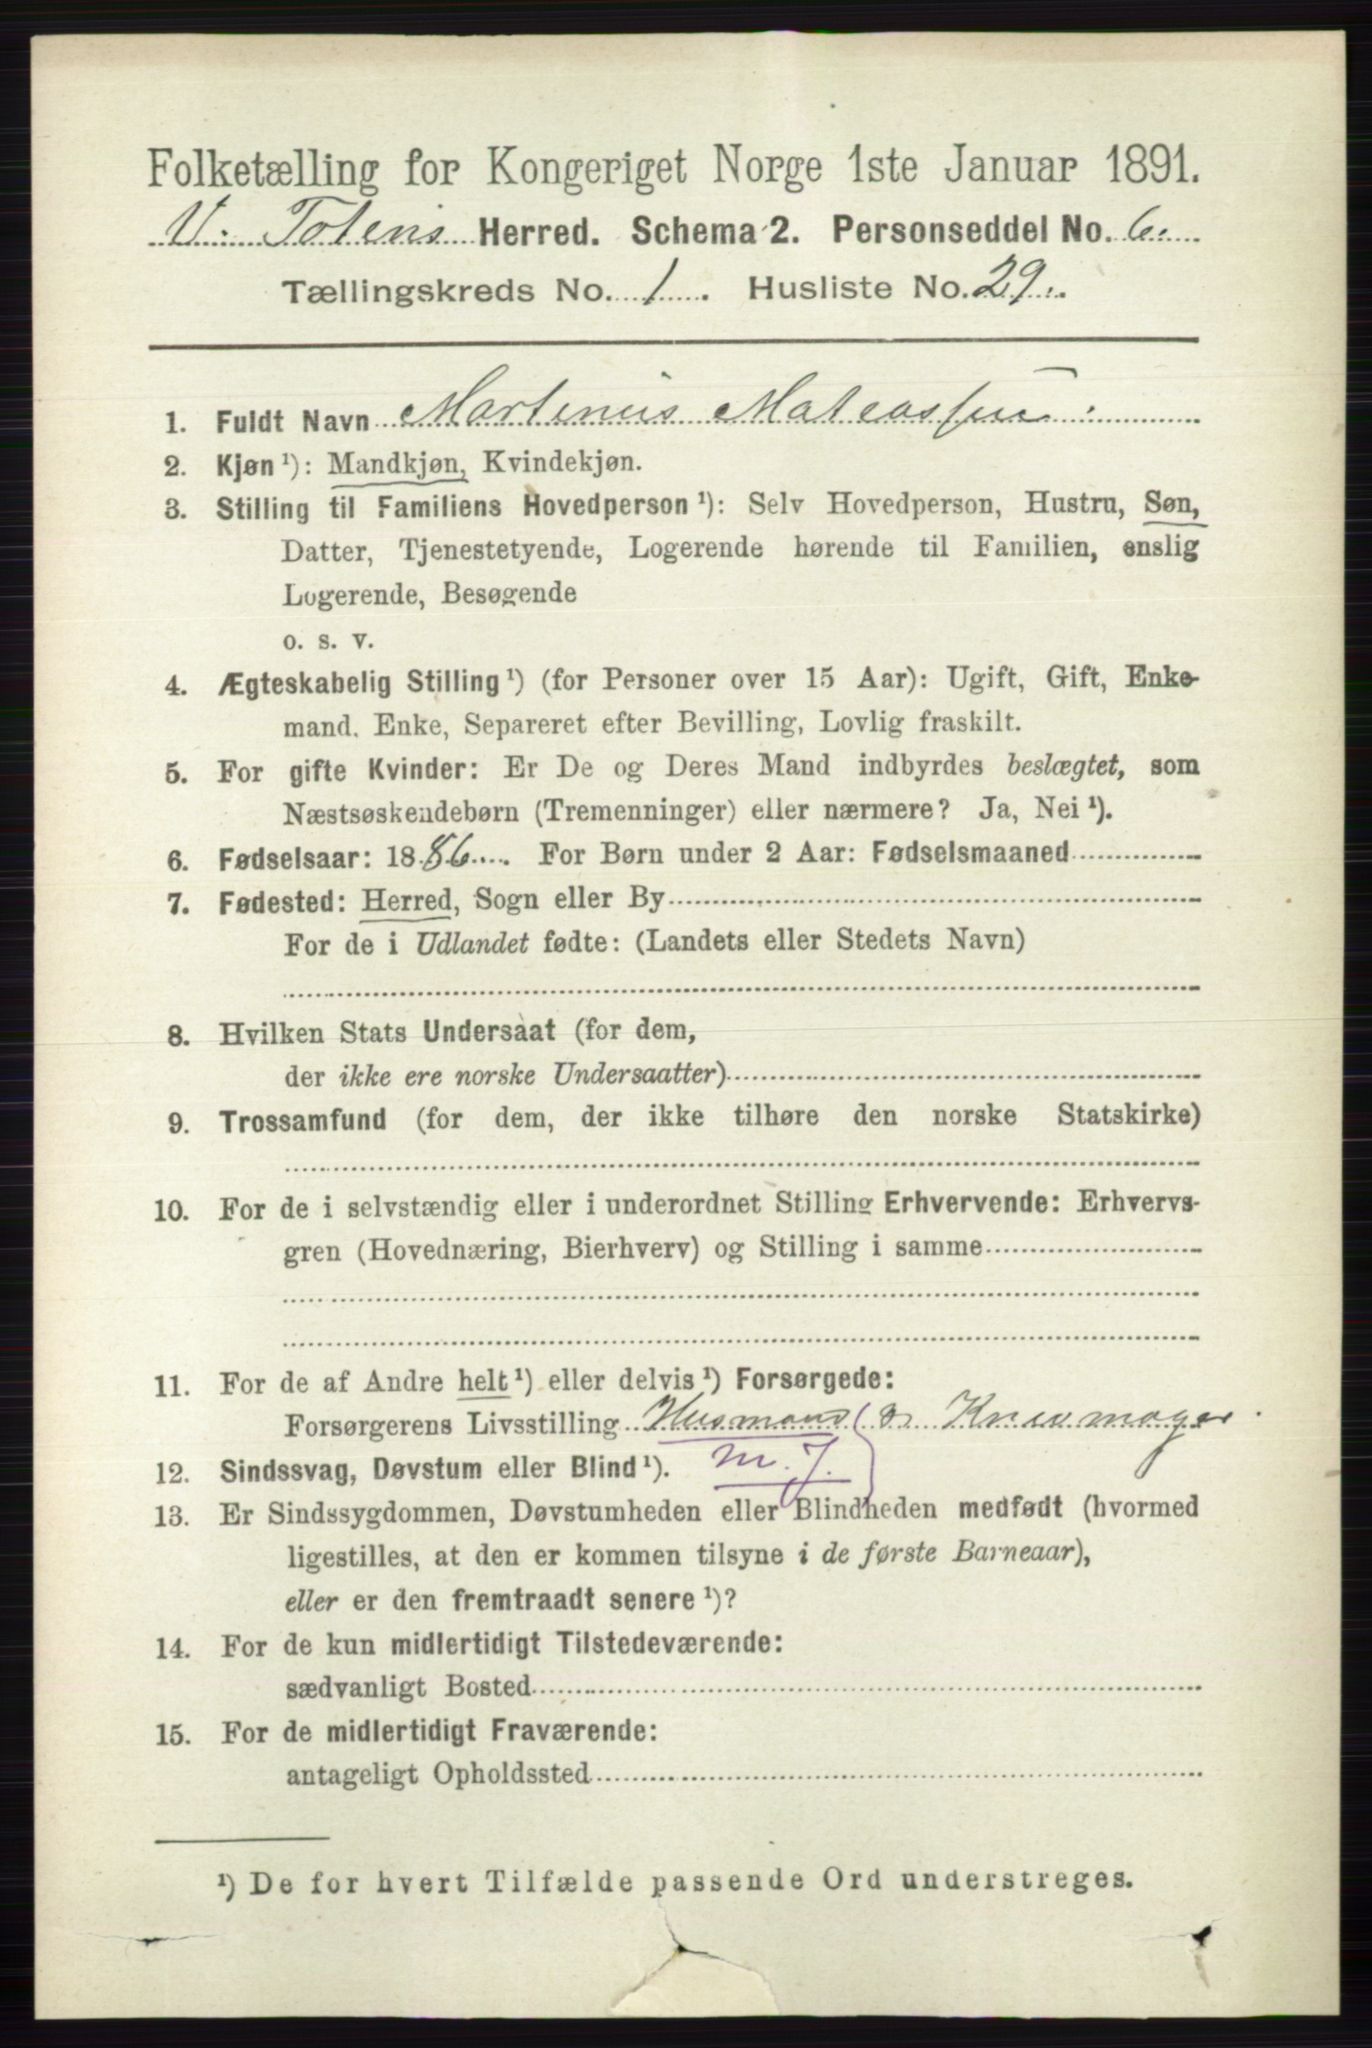 Folketælling for Kongeriget Norge 1ste Januar 1891.
V. Totens Herred. Schema 2. Personseddel No. 6.
Tællingskreds No. 1. Husliste No. 29.
1. Fuldt Navn Martinus Mateassen
2. Kjøn ¹): Mandkjøn, Kvindekjøn.
3. Stilling til Familiens Hovedperson ¹): Selv Hovedperson, Hustru, Søn,
Datter, Tjenestetyende, Logerende hørende til Familien, enslig
Logerende, Besøgende
o. s. v.
4. Ægteskabelig Stilling ¹) (for Personer over 15 Aar): Ugift, Gift, Enke-
mand, Enke, Separeret efter Bevilling, Lovlig fraskilt.
5. For gifte Kvinder: Er De og Deres Mand indbyrdes beslægtet, som
Næstsøskendebørn (Tremenninger) eller nærmere? Ja, Nei ¹).
6. Fødselsaar: 1886. For Børn under 2 Aar: Fødselsmaaned
7. Fødested: Herred, Sogn eller By
For de i Udlandet fødte: (Landets eller Stedets Navn)
8. Hvilken Stats Undersaat (for dem,
der ikke ere norske Undersaatter)
9. Trossamfund (for dem, der ikke tilhøre den norske Statskirke)
10. For de i selvstændig eller i underordnet Stilling Erhvervende: Erhvervs-
gren (Hovednæring, Bierhverv) og Stilling i samme
11. For de af Andre helt ¹) eller delvis ¹) Forsørgede:
Forsørgerens Livsstilling Husmand
m. J.
12. Sindssvag, Døvstum eller Blind ¹).
13. Er Sindssygdommen, Døvstumheden eller Blindheden medfødt (hvormed
ligestilles, at den er kommen tilsyne i de første Barneaar),
eller er den fremtraadt senere ¹)?
14. For de kun midlertidigt Tilstedeværende:
sædvanligt Bosted
15. For de midlertidigt Fraværende:
antageligt Opholdssted
¹) De for hvert Tilfælde passende Ord understreges.